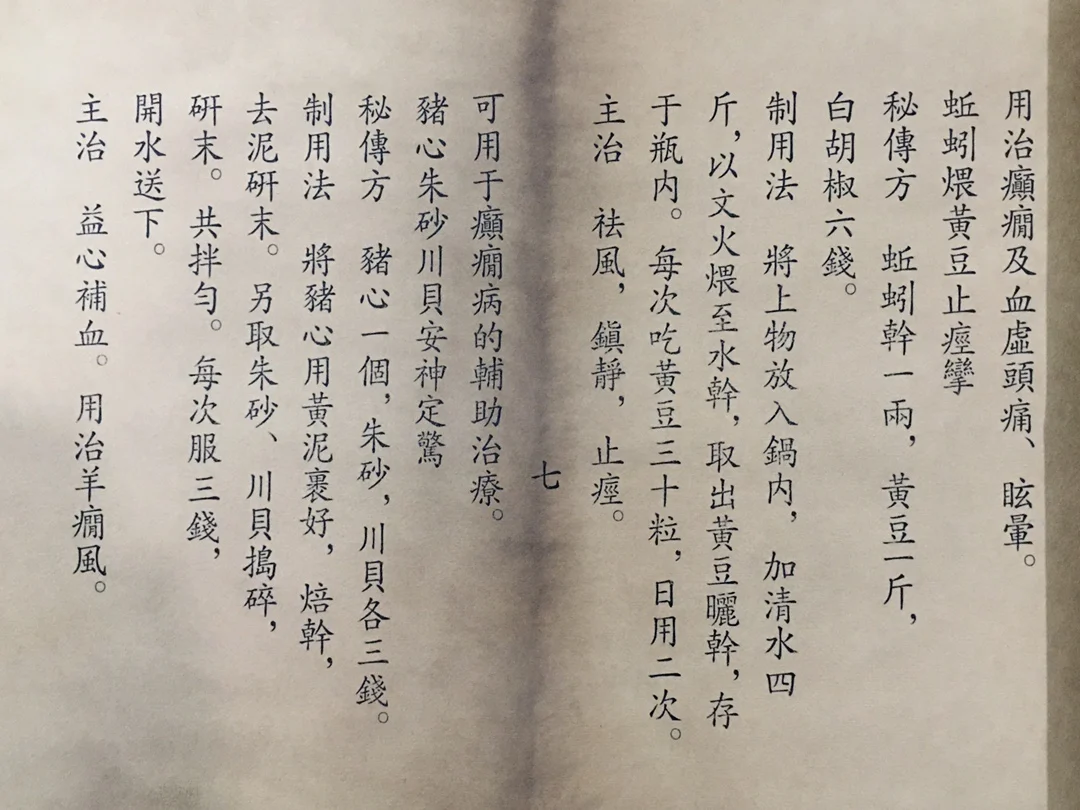 用治癲癇及血虛頭痛、眩暈。
蚯蚓煨黃豆止痙攣
秘傳方　蚯蚓幹一兩，黃豆一斤，
白胡椒六錢。
制用法　將上物放入鍋内，加清水四
斤，以文火煨至水幹，取出黃豆曬幹，存
于瓶内。每次吃黃豆三十粒，日用二次。
主治　祛風，鎮靜，止痙。
七
可用于癲癇病的輔助治療。
豬心朱砂川貝安神定驚
秘傳方　豬心一個，朱砂，川貝各三錢。
制用法　將豬心用黃泥裹好，焙幹，
去泥研末。另取朱砂、川貝搗碎，
研末。共拌勻。每次服三錢，
開水送下。
主治　益心補血。用治羊癇風。